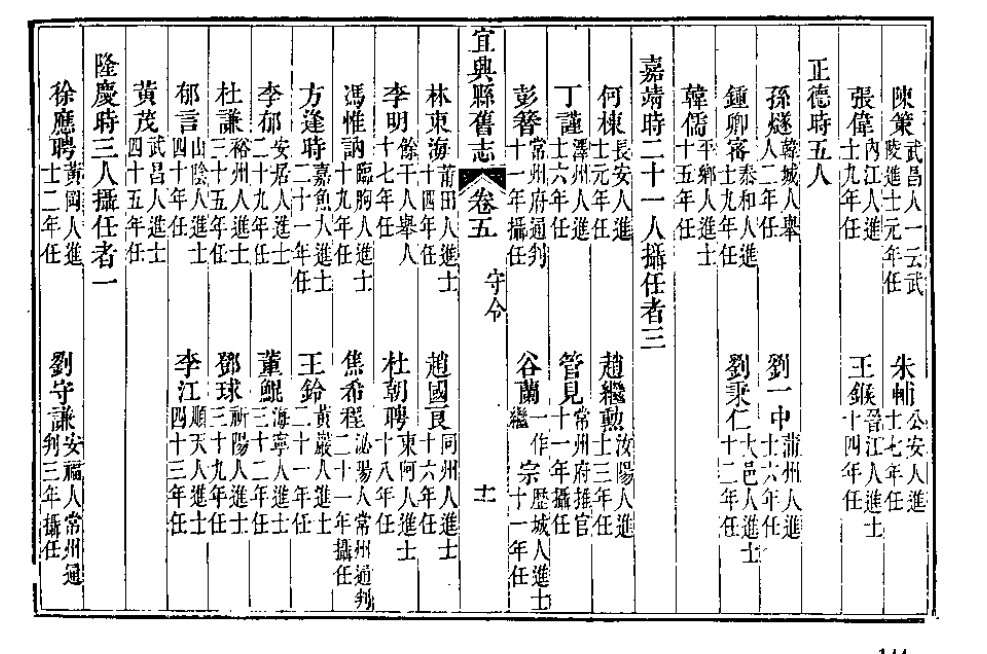 陳策 武昌人一云武陵進士元年任 朱輔 公安人進士七年任
張偉 內江人進士九年任 王鍭 晉江人進士十四年任
正德時五人
孫燧 韓城人舉人二年任 劉一中 蒲州人進士六年任
鍾卿寀 泰和人進士九年任 劉秉仁 大邑人進士十二年任
韓儒 平鄉人進士十五年任
嘉靖時二十一人攝任者三
何棟 長安人進士元年任 趙繼勲 汝陽人進士三年任
丁謹 澤州人進士六年任 管見 常州府推官十一年攝任
彭簪 常州府通判十一年攝任 谷蘭 一作宗繼 歷城人進士十一年任
宜興縣舊志 卷五 守令 十一
林東海 莆田人進士十四年任 趙國良 同州人進士十六年任
李明 餘干人舉人十七年任 杜朝聘 東阿人進士十八年任
馮惟訥 臨朐人進士十九年任 焦希程 泌陽人常州通判二十一年攝任
方逢時 嘉魚人進士二十一年任 王鈴 黃巖人進士二十一年任
李郁 安居人進士二十九年任 董鯤 海寧人進士三十二年任
杜謙 裕州人進士三十五年任 鄧球 祈陽人進士三十九年任
郁言 山陰人進士四十年任 李江 順天人進士四十三年任
黃茂 武昌人進士四十五年任
隆慶時三人攝任者一
徐應聘 黃岡人進士二年任 劉守謙 安福人常州通判三年攝任